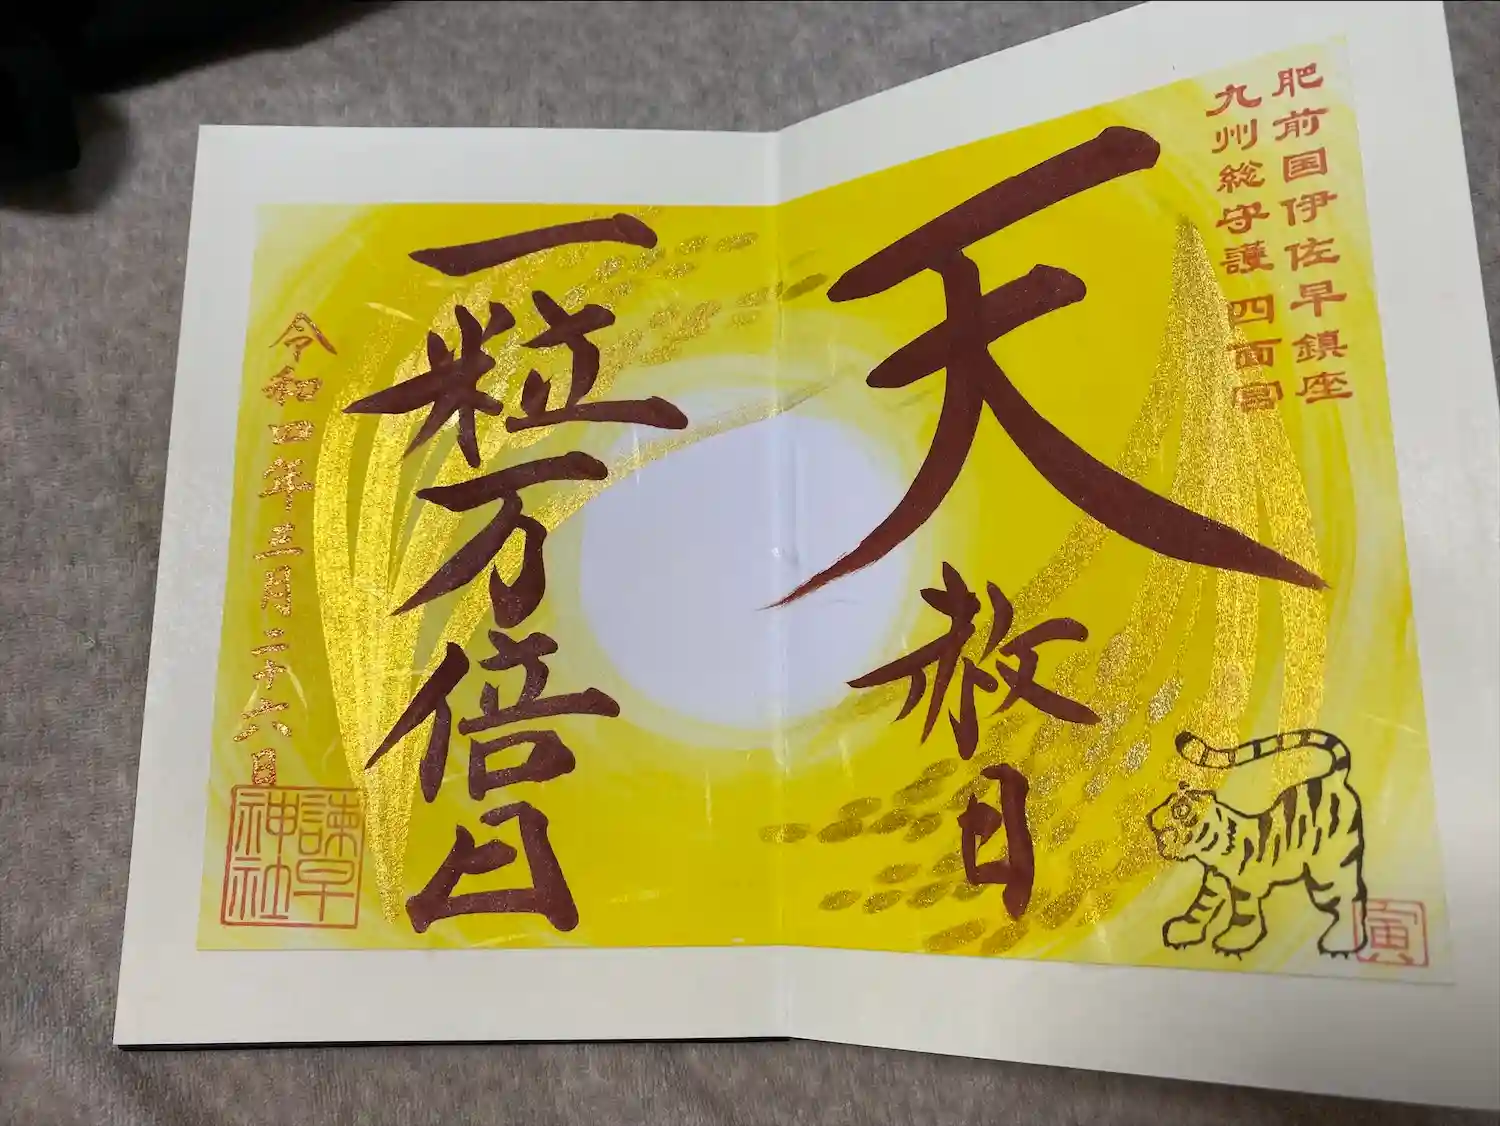 肥前国伊佐早鎮座
九州総守護 四面宮
天赦日
寅
一粒万倍日
令和四年三月二十六日
諫早神社